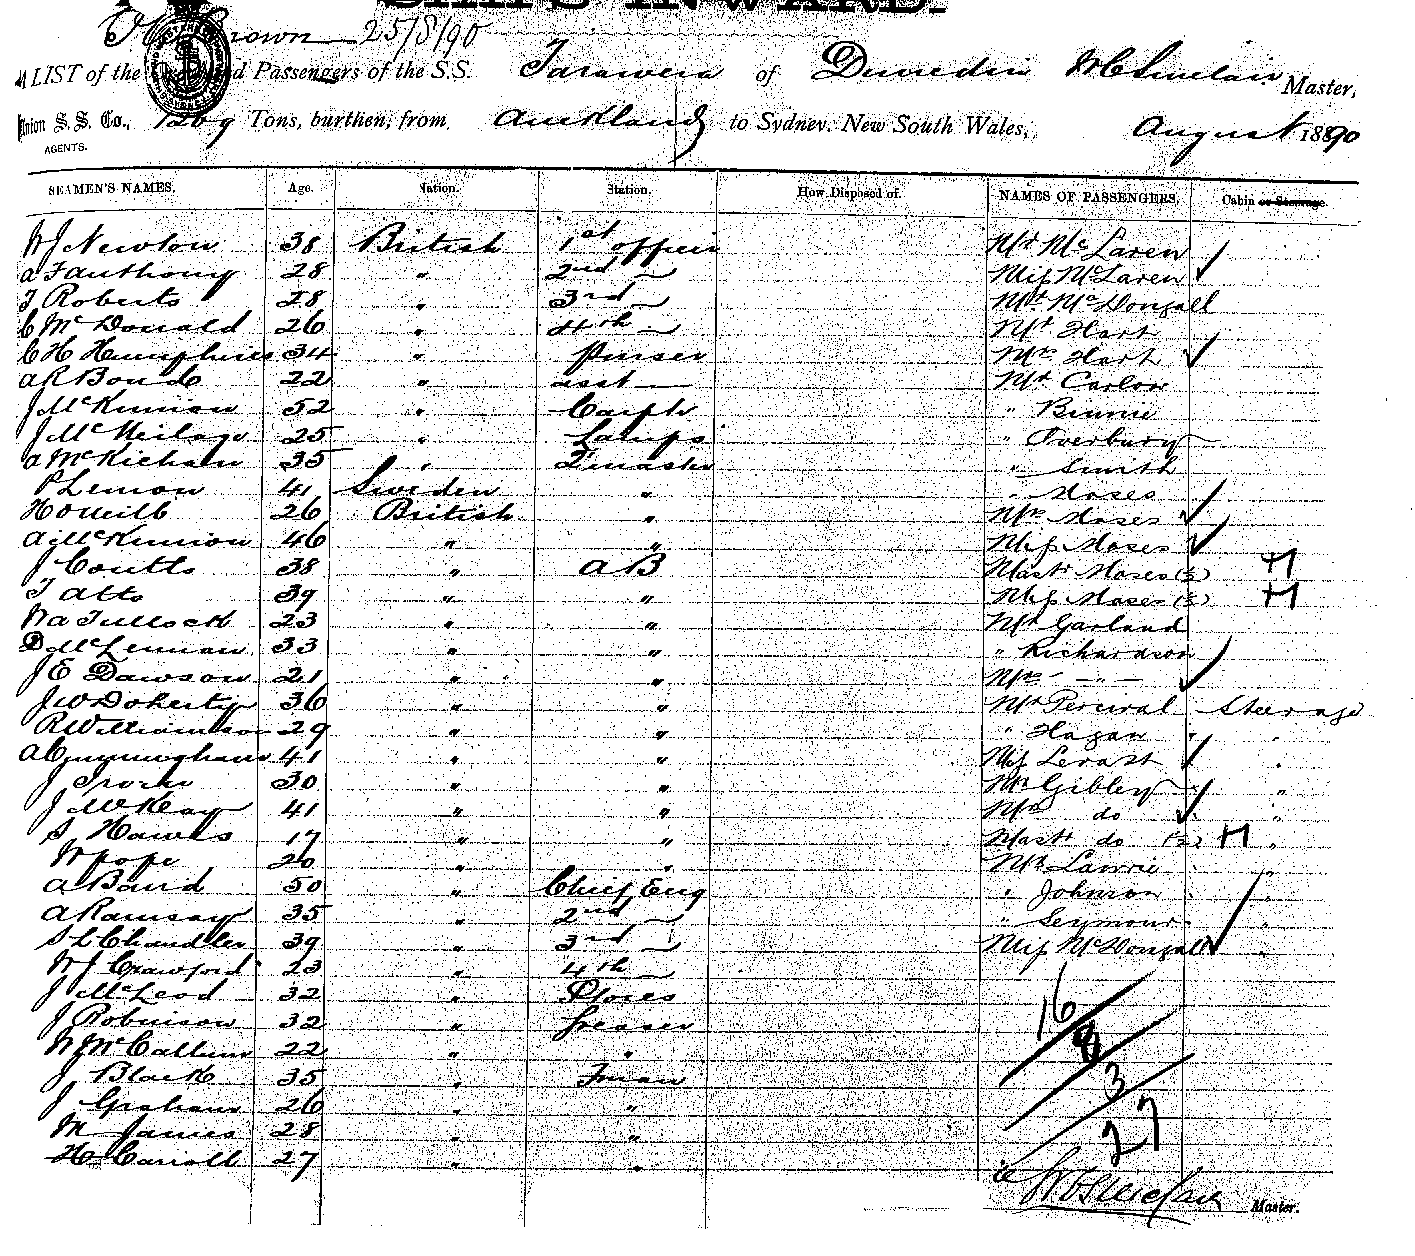 SHIPS INWARD.
Brown 25/8/90
A LIST of the Crew and Passengers of the S.S. Tarawera of Dunedin McSinclair Master,
Union S. S. Co., 1269 Tons, burthen, from Auckland to Sydney, New South Wales, August 1890
AGENTS.
SEAMEN'S NAMES. Age. Nation. Station. How Disposed of. NAMES OF PASSENGERS. Cabin or Steerage.
W J Newton 38 British 1st officer Mr McLaren
A F Anthony 28 " 2nd — Miss McLaren
T Roberts 28 " 3rd — Mr McDougall
C McDonald 26 " 4th — Mr Hart
C H Humphries 34 " Purser Mrs Hart
A R Bond 22 " asst — Mr Carlow
J McKinnon 52 " Carptr " Binnie
J McNeilage 25 " Lamps " Overbury
A McKichan 35 " " Smith
P Lemon 41 Sweden " " Moses
H O'Neill 26 British " Mrs Moses
A McKinnon 46 " " Miss Moses
J Coutts 38 " AB Mastr Moses (½) H
T Atts 39 " " Miss Moses (½) H
W A Tullock 23 " " Mr Garland
D McLennan 33 " " " Richardson
J E Dawson 21 " " Mrs — " —
J W Doherty 36 " " Mr Percival Steerage
R Williamson 29 " " " Hagan "
A Cunningham 41 " " Miss "
J 30 " " Mr Gibley "
J McKeay 41 " " Mrs do "
S Hawes 17 " " Mastr do (½) H "
W Pope 20 " " Mr Lawrie "
A Baird 50 " Chief Eng " Johnson "
A Ramsay 35 " 2nd — " Seymour "
S L Chandler 39 " 3rd — Miss McDougall "
W J Crawford 23 " 4th —
J McLeod 32 " Stores
J Robinson 32 " Greaser 16
W McCallum 22 " " 8
J Black 35 " Fman 3
J Graham 26 " "
M James 28 " " 27
H Carroll 27 " "
Master.